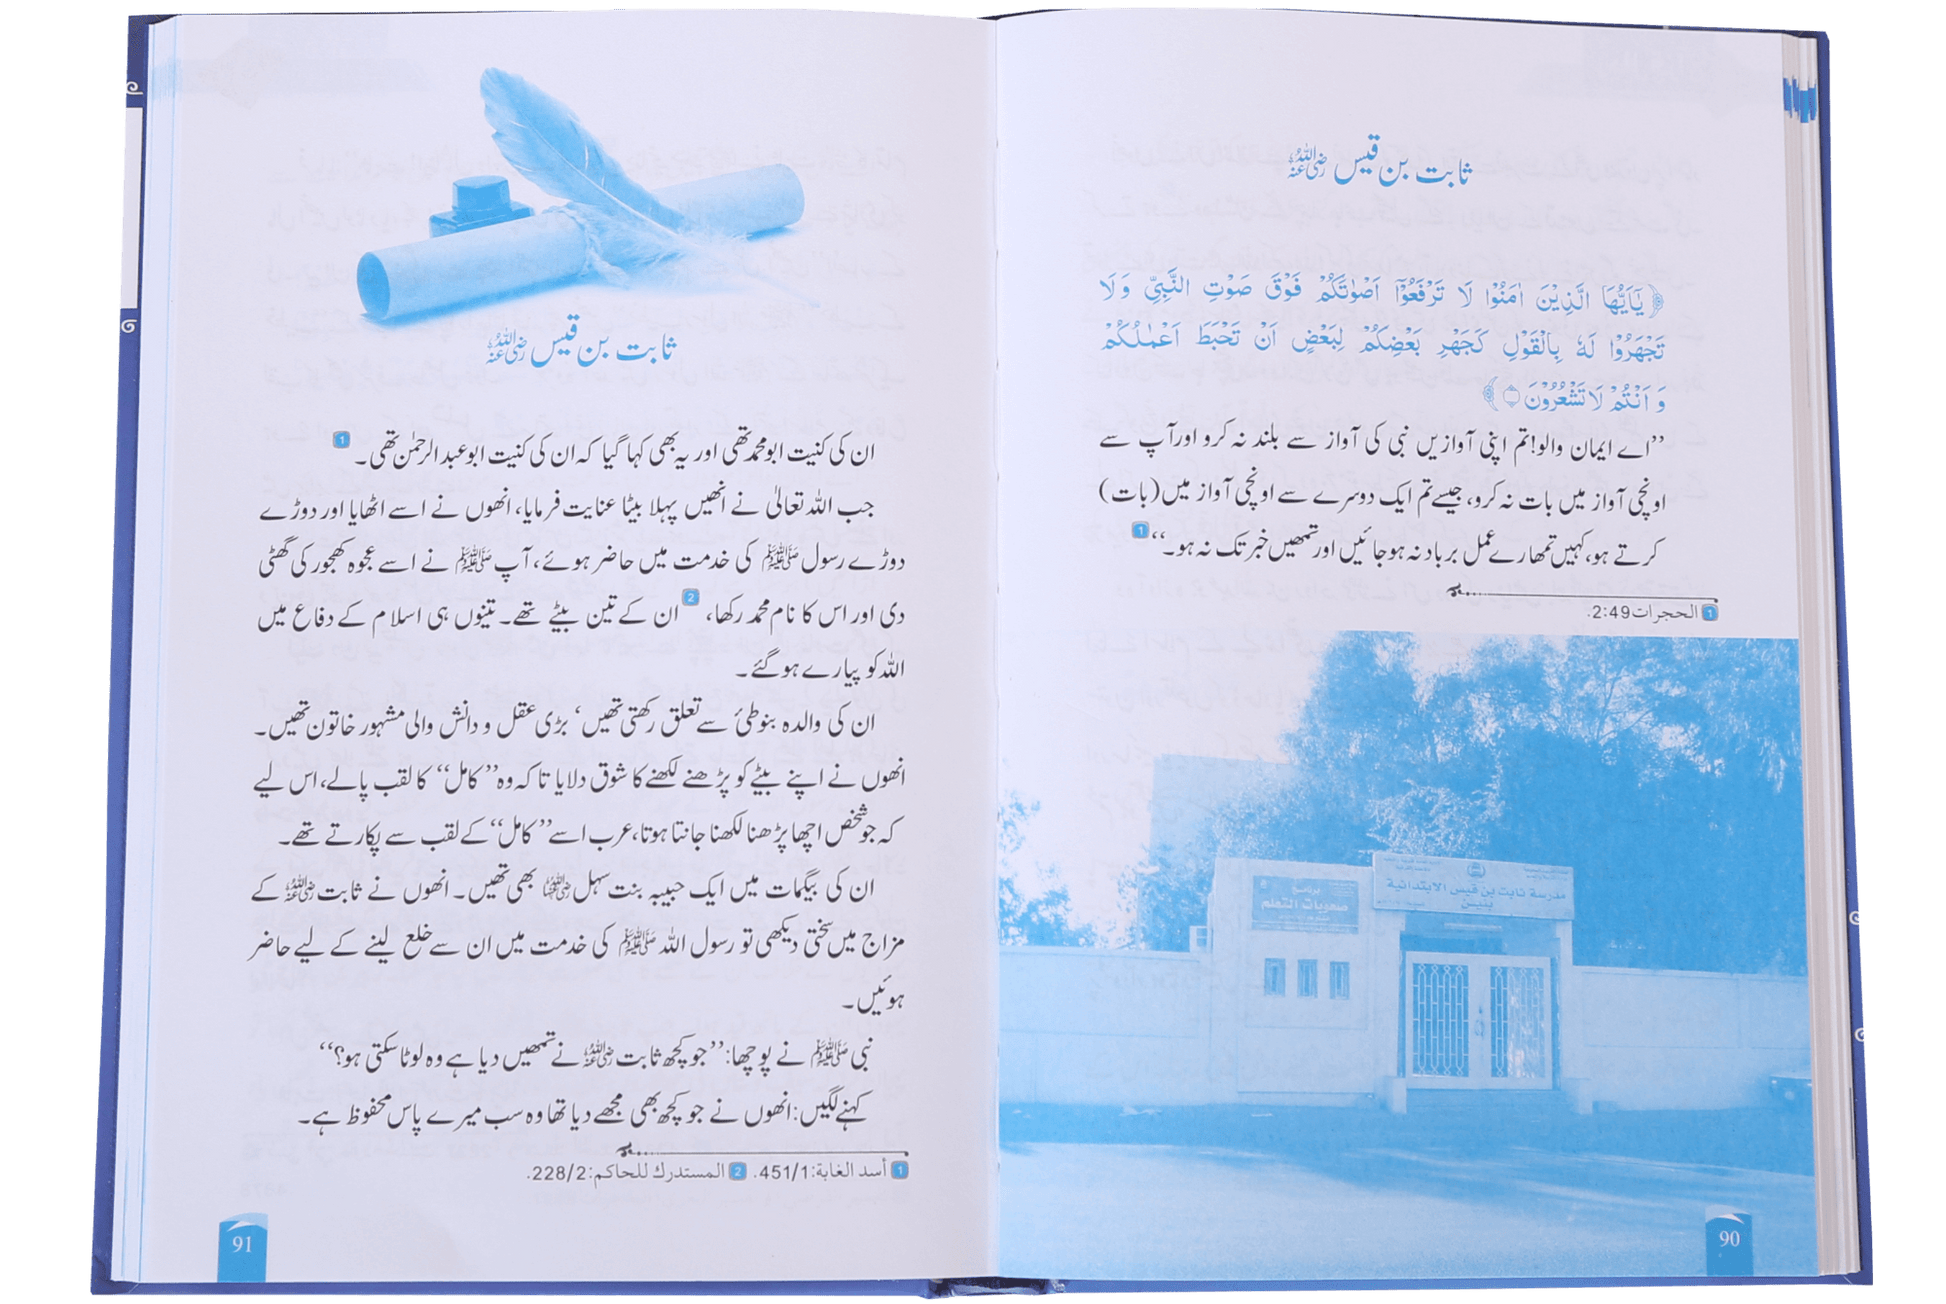 ثابت بن قیس رضی اللہ عنہ
﴿يٰۤاَيُّهَا الَّذِيْنَ اٰمَنُوْا لَا تَرْفَعُوْۤا اَصْوٰتَكُمْ فَوْقَ صَوْتِ النَّبِيِّ وَلَا
تَجْهَرُوْا لَهٗ بِالْقَوْلِ كَجَهْرِ بَعْضِكُمْ لِبَعْضٍ اَنْ تَحْبَطَ اَعْمٰلُكُمْ
وَ اَنْتُمْ لَا تَشْعُرُوْنَ ۝﴾
’’اے ایمان والو! تم اپنی آوازیں نبی کی آواز سے بلند نہ کرو اور آپ سے
اونچی آواز میں بات نہ کرو، جیسے تم ایک دوسرے سے اونچی آواز میں (بات)
کرتے ہو، کہیں تمھارے عمل برباد نہ ہو جائیں اور تمھیں خبر تک نہ ہو۔‘‘ 1
1 الحجرات 2:49.
مدرسة ثابت بن قيس الابتدائية
بنين
برنامج
صعوبات التعلم
90
ثابت بن قیس رضی اللہ عنہ
ان کی کنیت ابو محمد تھی اور یہ بھی کہا گیا کہ ان کی کنیت ابو عبدالرحمٰن تھی۔ 1
جب اللہ تعالیٰ نے انھیں پہلا بیٹا عنایت فرمایا، انھوں نے اسے اٹھایا اور دوڑے
دوڑے رسول ﷺ کی خدمت میں حاضر ہوئے، آپ ﷺ نے اسے عجوہ کھجور کی گھٹی
دی اور اس کا نام محمد رکھا، 2 ان کے تین بیٹے تھے۔ تینوں ہی اسلام کے دفاع میں
اللہ کو پیارے ہو گئے۔
ان کی والدہ بنوطئ سے تعلق رکھتی تھیں‘ بڑی عقل و دانش والی مشہور خاتون تھیں۔
انھوں نے اپنے بیٹے کو پڑھنے لکھنے کا شوق دلایا تاکہ وہ ’’کامل‘‘ کا لقب پالے، اس لیے
کہ جو شخص اچھا پڑھنا لکھنا جانتا ہوتا، عرب اسے ’’کامل‘‘ کے لقب سے پکارتے تھے۔
ان کی بیگمات میں ایک حبیبہ بنت سہل رضی اللہ عنہا بھی تھیں۔ انھوں نے ثابت رضی اللہ عنہ کے
مزاج میں سختی دیکھی تو رسول اللہ ﷺ کی خدمت میں ان سے خلع لینے کے لیے حاضر
ہوئیں۔
نبی ﷺ نے پوچھا: ’’جو کچھ ثابت رضی اللہ عنہ نے تمھیں دیا ہے وہ لوٹا سکتی ہو؟‘‘
کہنے لگیں: انھوں نے جو کچھ بھی مجھے دیا تھا وہ سب میرے پاس محفوظ ہے۔
1 أسد الغابة: 451/1. 2 المستدرك للحاكم: 228/2.
91